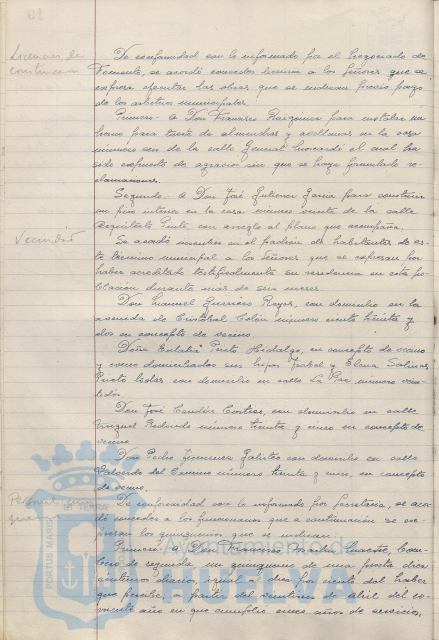 Licencias de
construcción
De conformidad con lo informado por el Negociado de
Fomento, se acordó conceder licencia a los Señores que se
expresa ejecutar las obras que se indican previo pago
de los arbitrios municipales.
Primero - A Don Francisco para instalar un
horno para tueste de almendras y avellanas en la casa
número seis de la calle General el cual ha
sido expuesto de agravios sin que se haya formulado re-
clamaciones.
Segundo - A Don José Gutierrez García para construir
un piso interior en la casa número veinte de la calle
Arquitecto Pinto, con arreglo al plano que acompaña.
Vecindad
Se acordó inscribir en el padrón de habitantes de es-
te término municipal a los Señores que se expresan por
haber acreditado testificalmente su residencia en esta po-
blación durante más de seis meses.
Don Manuel Rojas, con domicilio en la
avenida de Cristobal Colón número ciento treinta y
dos en concepto de vecino.
Doña Eulalia Prieto Hidalgo, en concepto de vecino
y como domiciliados sus hijos Isabel y Elena Salinas
Prieto todos con domicilio en calle La Paz número vein-
tidós.
Don José Candón Cortés, con domicilio en calle
Miguel Redondo número treinta y cinco en concepto de
vecino
Don Pedro Jimenez con domicilio en calle
del Camino número treinta y cinco, en concepto
de vecino.
Personal
De conformidad con lo informado por Secretaría, se acor-
dó conceder a los funcionarios que a continuación se ex-
presan los quinquenios que se indican.
Primero - A Don Francisco
de segunda, un quinquenio de una peseta diez
céntimos diarios, igual al diez por ciento del haber
que percibe, a partir del veintiuno de abril del co-
rriente año en que cumplió cinco años de servicios.
PORTUS MARIS
Ayuntamiento de
HUELVA